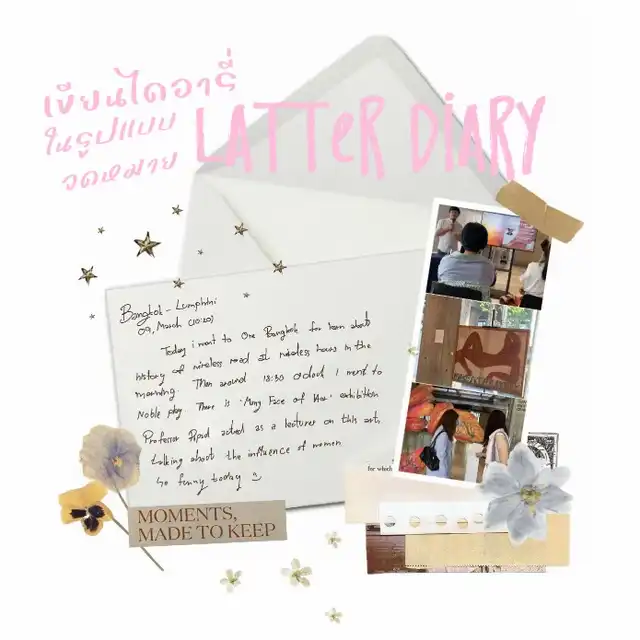 เขียนไดอารี่
ในรูปแบบ
จดหมาย
LATTER DIARY
Bangkok - Lumphini
09, March (10:20)
Today i went to One Bangkok for learn about
history of wireless road at wireless house in the
morning. Then around 13:30 o'clock I went to
Noble play. There is "Many Face of Her" exhibition
Professor acted as a lecturer on this arts
talking about the influence of women
So funny today
for which
MOMENTS,
MADE TO KEEP